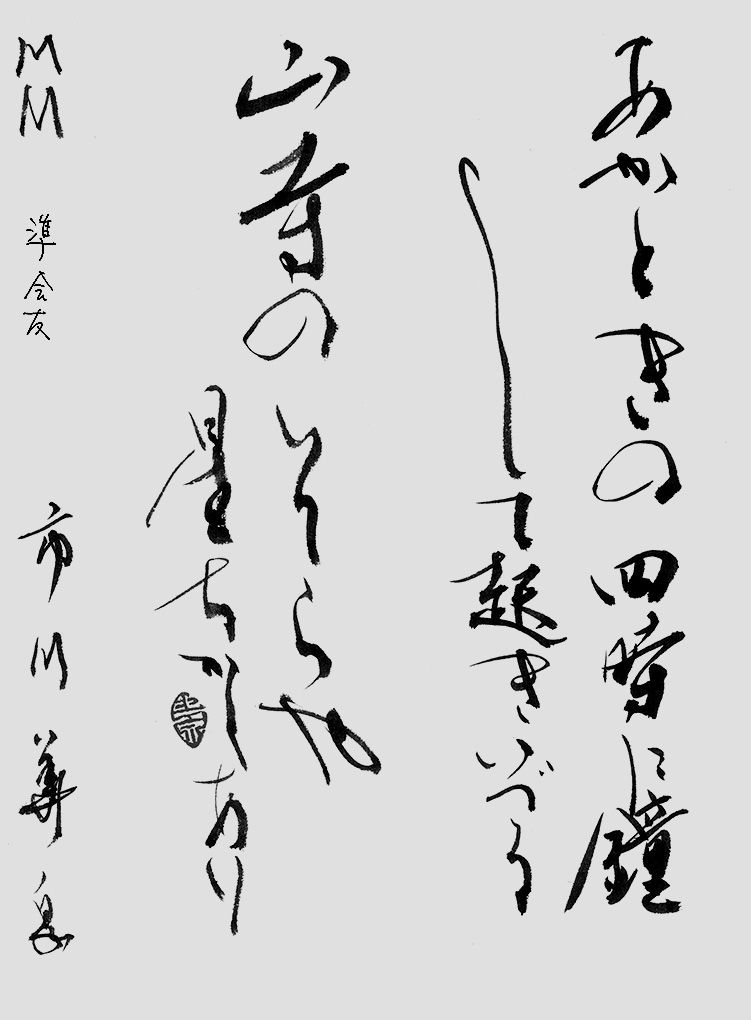 あかときの四時に鐘
して起きいづる
山寺の
星ちかくあり
MM 準会友 市川華